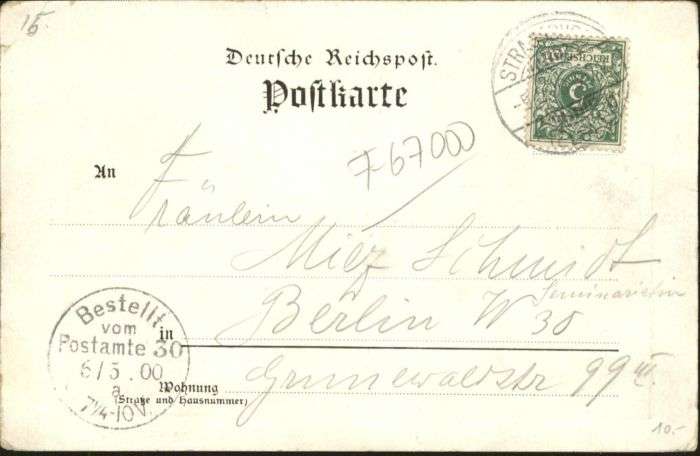 15.
Deutsche Reichspost.
Postkarte
STRA
REICHSPOST
5
An
F 67000
Fräulein
Miez Schmidt
Seminaristin
Berlin W 30
in
Grunewaldstr 99 III.
Wohnung
(Straße und Hausnummer)
Bestellt
vom
Postamte 30
6/5.00
a
7¼-10V.
10.-